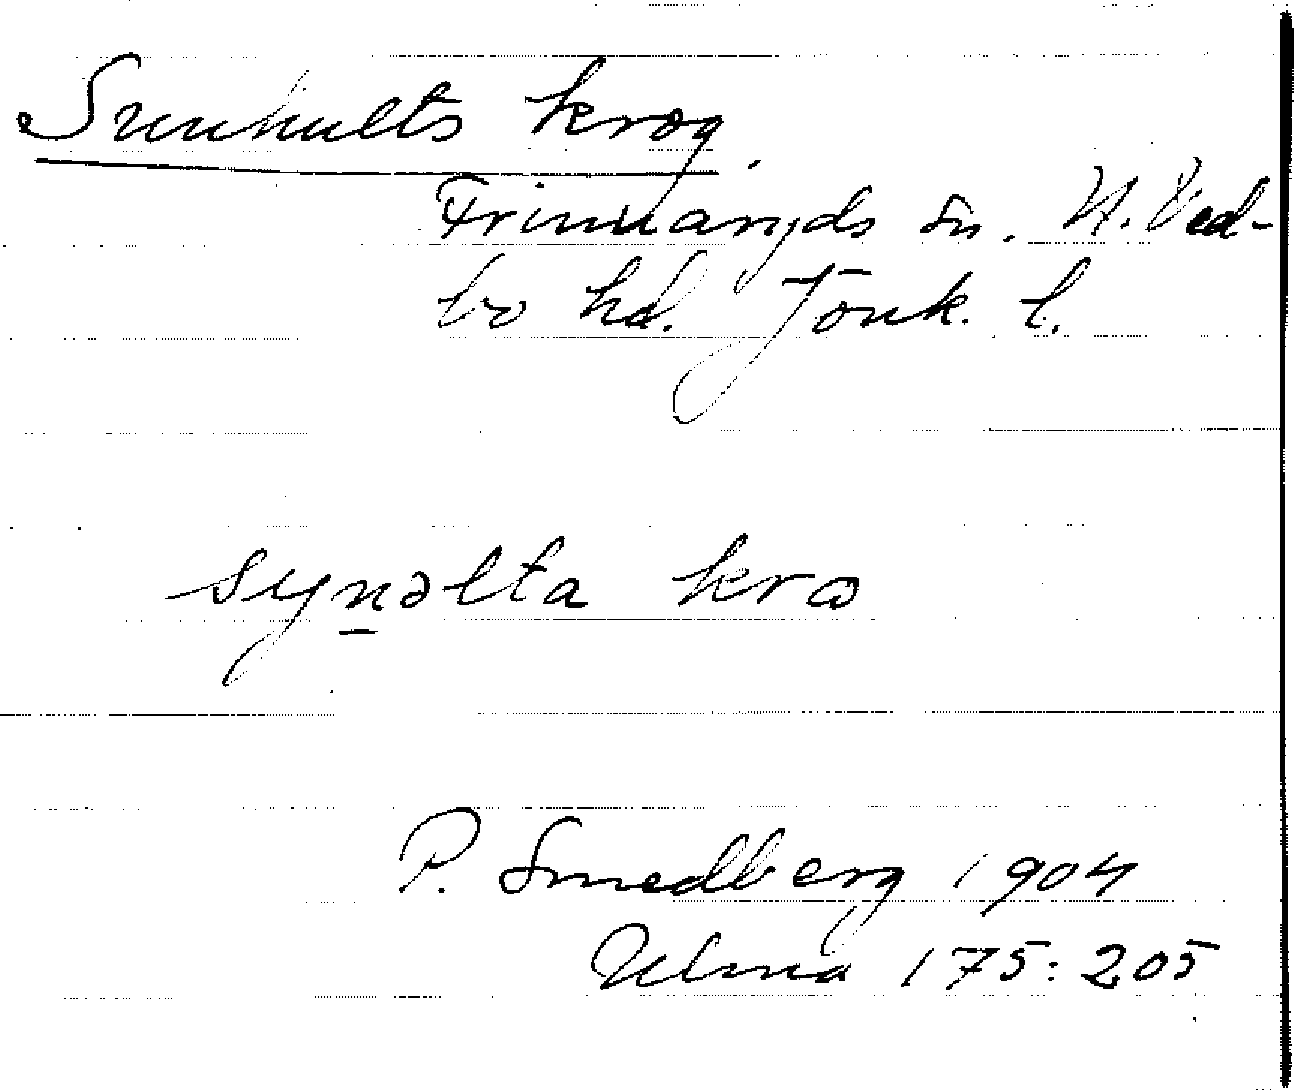 Sunhults krog.
Frinnaryds sn. N. Ved-
bo hd. Jönk. l.
synəlta krɷ
P. Smedberg 1904
Ulma 175:205